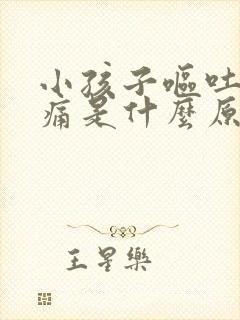 小孩子嘔吐
痛是什麼原
王星樂